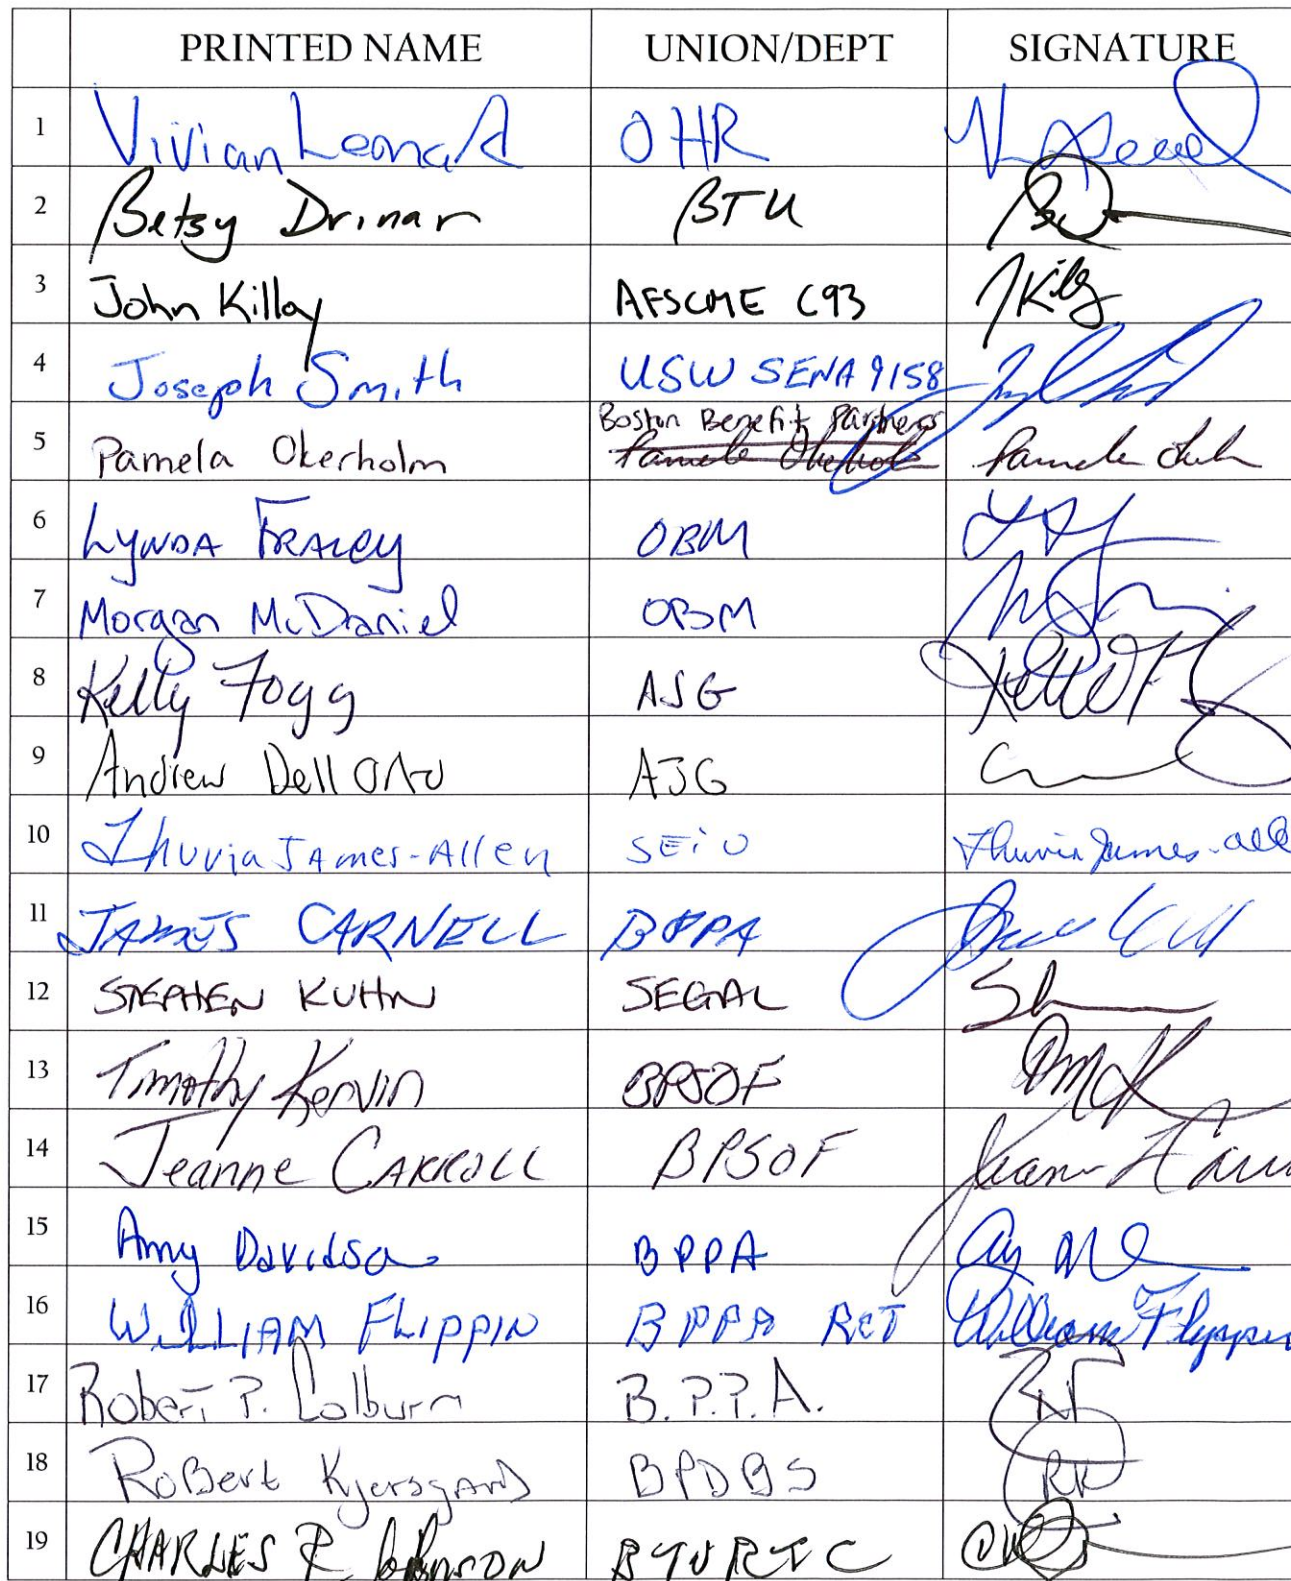 PRINTED NAME UNION/DEPT SIGNATURE
1 Vivian Leonard OHR
2 Betsy Drinan BTU
3 John Killoy AFSCME C93 JKiloy
4 Joseph Smith USW SENA 9158
Boston Benefit Partners
5 Pamela Okerholm Pamela Okerholm Pamela
6 Lynda Fraley OBM
7 Morgan McDaniel OBM
8 Kelly Fogg AJG Kelly F
9 Andrew Dell Orto AJG
10 Thuvia James-Allen SEiU Thuvia James-All
11 JAMES CARNELL BPPA
12 STEPHEN KUHN SEGAL
13 Timothy Kervin BPSOF
14 Jeanne CARROLL BPSOF Jeanne Carr
15 Amy Davidson BPPA Amy
16 WILLIAM FLIPPIN BPPA RET William Flippin
17 Robert P. Colburn B.P.P.A.
18 RoBert Kjersgard BPDBS RK
19 CHARLES R Johnson BTU RTC